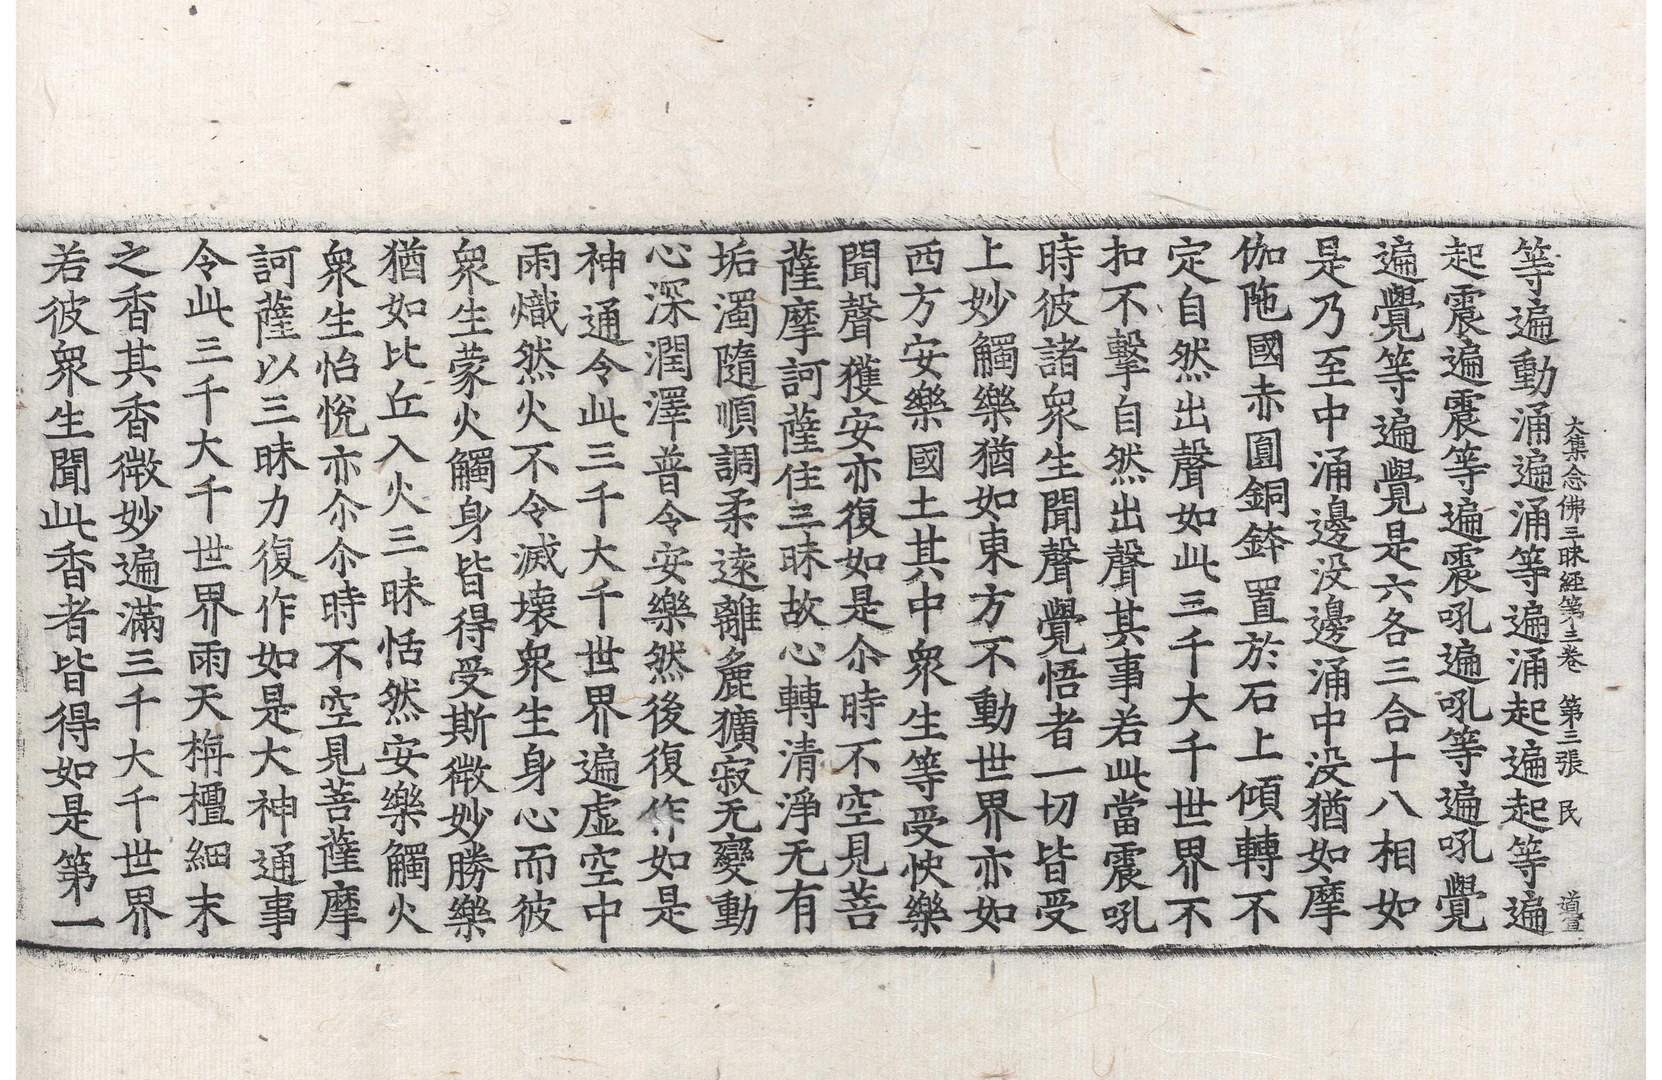 大集念佛三昧經第三卷　第三張　民　道宣
等遍動涌遍涌等遍涌起遍起等遍
起震遍震等遍震吼遍吼等遍吼覺
遍覺等遍覺是六各三合十八相如
是乃至中涌邊没邊涌中没猶如摩
伽陁國赤圓銅鉢置於石上傾轉不
定自然出聲如此三千大千世界不
扣不擊自然出聲其事若此當震吼
時彼諸衆生聞聲覺悟者一切皆受
上妙觸樂猶如東方不動世界亦如
西方安樂國土其中衆生等受快樂
聞聲獲安亦復如是尒時不空見菩
薩摩訶薩住三昧故心轉清淨无有
垢濁隨順調柔遠離麁獷寂无變動
心深潤澤普令安樂然後復作如是
神通令此三千大千世界遍虛空中
雨熾然火不令滅壞衆生身心而彼
衆生蒙火觸身皆得受斯微妙勝樂
猶如比丘入火三昧恬然安樂觸火
衆生怡悅亦尒尒時不空見菩薩摩
訶薩以三昧力復作如是大神通事
令此三千大千世界雨天栴檀細末
之香其香微妙遍滿三千大千世界
若彼衆生聞此香者皆得如是第一